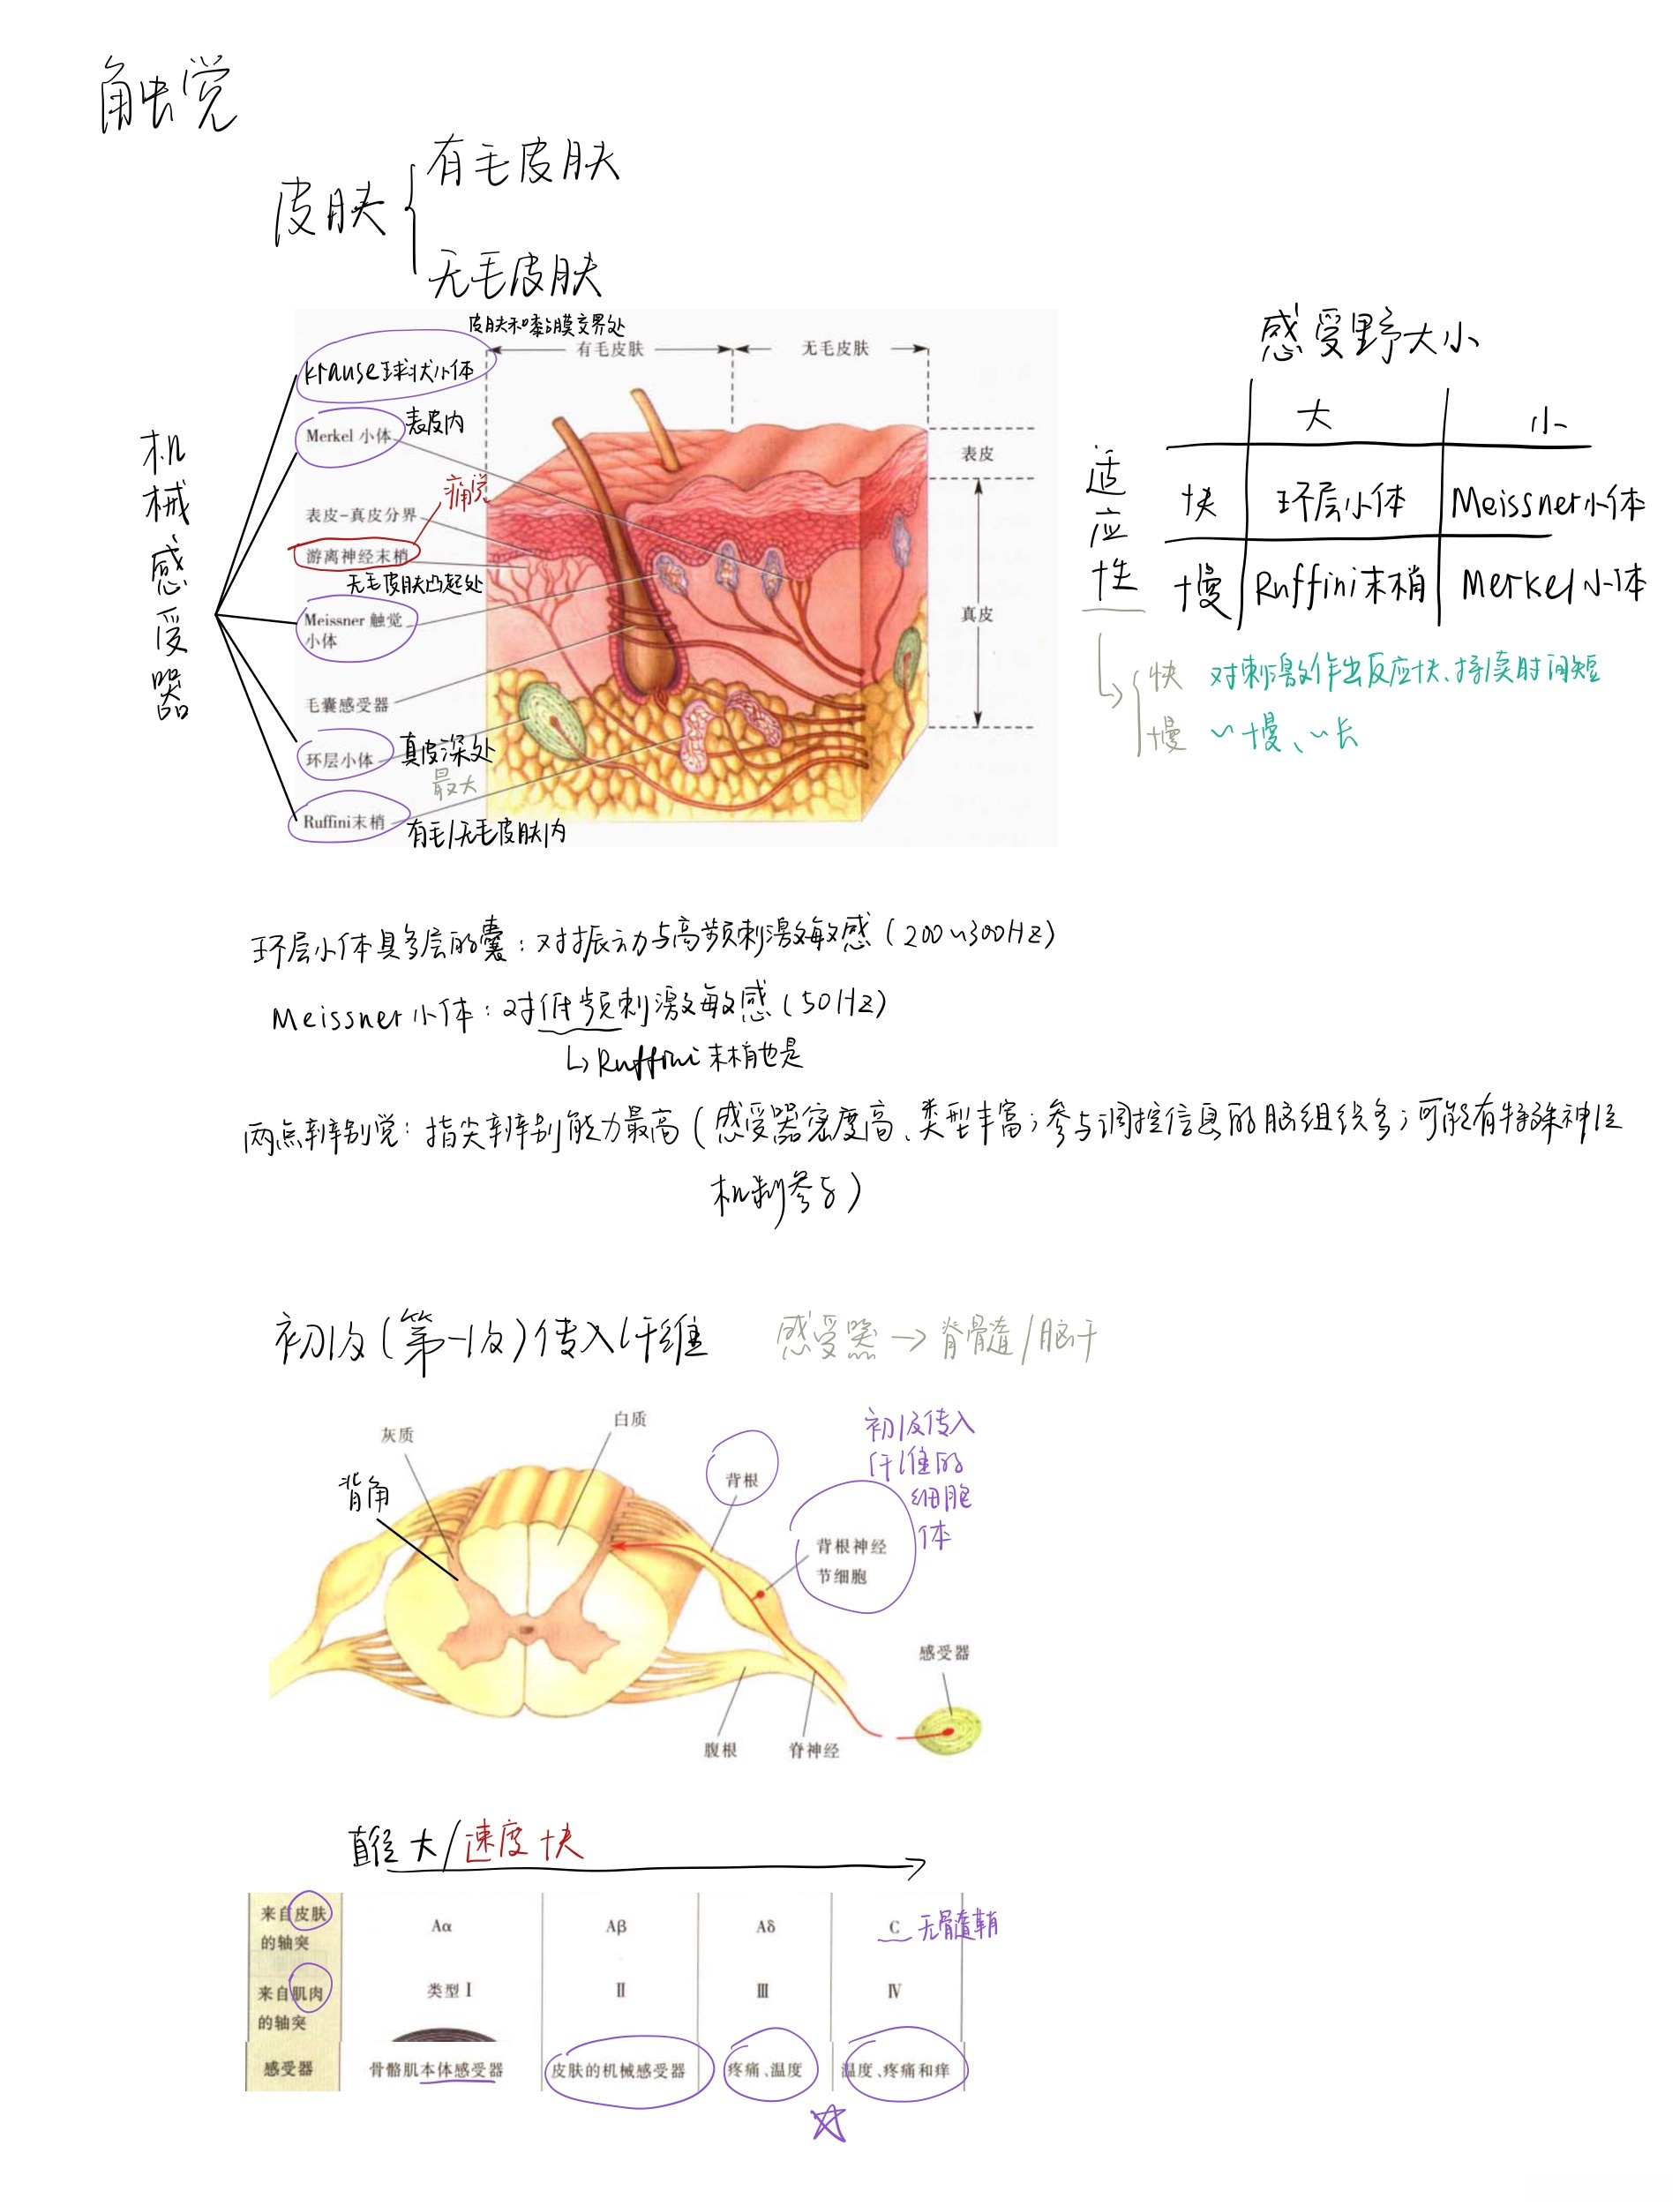 触觉
皮肤
有毛皮肤
无毛皮肤
皮肤和黏膜交界处
有毛皮肤
无毛皮肤
机械感受器
krause球状小体
Merkel 小体
表皮内
痛觉
表皮-真皮分界
游离神经末梢
无毛皮肤凸起处
Meissner 触觉
小体
毛囊感受器
环层小体
真皮深处
最大
Ruffini末梢
有毛/无毛皮肤内
表皮
真皮
感受野大小
适应性
大 小
快 环层小体 Meissner小体
慢 Ruffini末梢 Merkel小体
快 对刺激作出反应快、持续时间短
慢 〃慢、〃长
环层小体具多层的囊：对振动与高频刺激敏感（200~300Hz）
Meissner小体：对低频刺激敏感（50Hz）
Ruffini末梢也是
两点辨别觉：指尖辨别能力最高（感受器密度高、类型丰富；参与调控信息的脑组织多；可能有特殊神经
机制参与）
初级（第一级）传入纤维
感受器→脊髓/脑干
灰质
白质
背角
背根
初级传入
纤维的
细胞
体
背根神经
节细胞
感受器
腹根
脊神经
直径大/速度快
来自皮肤
的轴突
Aα Aβ Aδ C 无髓鞘
来自肌肉
的轴突
类型Ⅰ Ⅱ Ⅲ Ⅳ
感受器 骨骼肌本体感受器 皮肤的机械感受器 疼痛、温度 温度、疼痛和痒